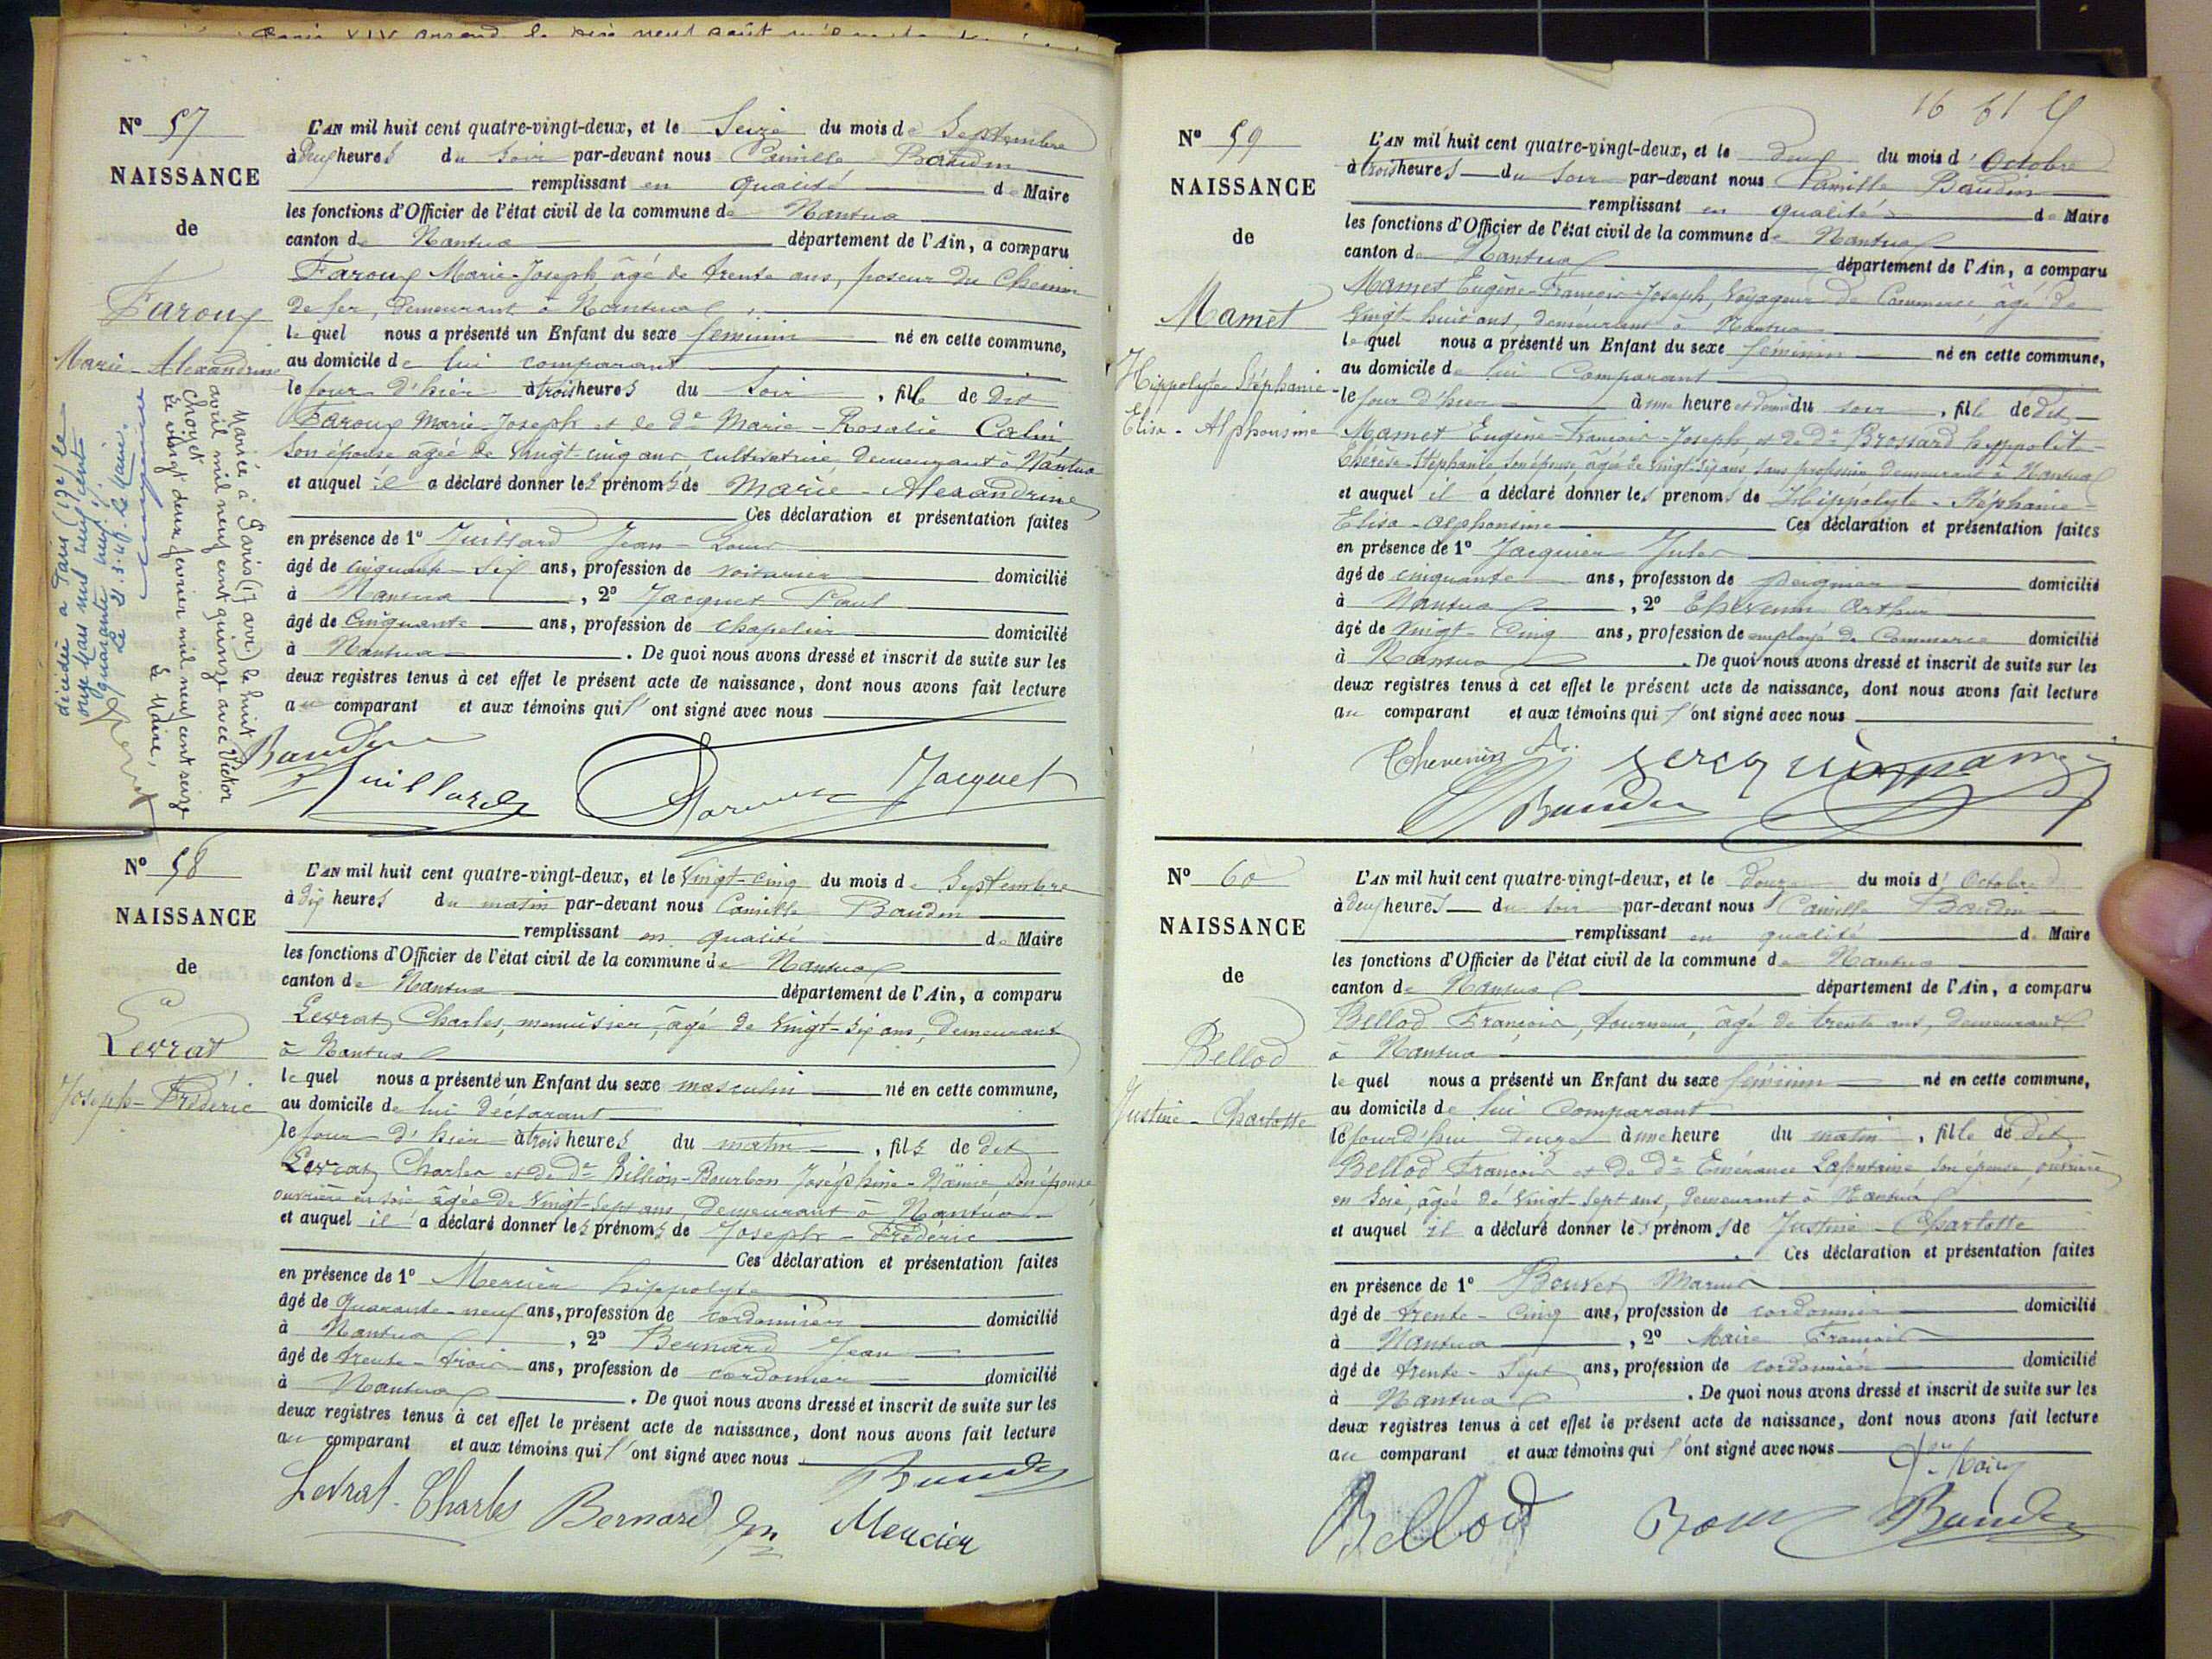 N° 57
NAISSANCE
de
Faroux
Marie-Alexandrine
Mariée à Paris (17 arr) le huit
avril mil neuf cent quinze avec Victor
Choyet
Le vingt deux février mil neuf cent seize
Le Maire,
décédée à Paris
mil neuf cent
quarante neuf
Le Maire
L'AN mil huit cent quatre-vingt-deux, et le Seize du mois de Septembre
à deux heures du Soir par-devant nous Camille Baudin
remplissant en qualité de Maire
les fonctions d'Officier de l'état civil de la commune de Nantua
canton de Nantua département de l'Ain, a comparu
Faroux Marie-Joseph, âgé de trente ans, poseur du Chemin
de fer, demeurant à Nantua
lequel nous a présenté un Enfant du sexe féminin né en cette commune,
au domicile de lui comparant
le jour d'hier à trois heures du Soir, fille de dit
Faroux Marie-Joseph et de de Marie-Rosalie Calin
Son épouse âgée de Vingt-cinq ans cultivatrice demeurant à Nantua
et auquel il a déclaré donner les prénoms de Marie-Alexandrine
Ces déclaration et présentation faites
en présence de 1° Juillard Jean-Louis
âgé de cinquante-Six ans, profession de voiturier domicilié
à Nantua, 2° Jacquet Paul
âgé de Cinquante ans, profession de chapelier domicilié
à Nantua. De quoi nous avons dressé et inscrit de suite sur les
deux registres tenus à cet effet le présent acte de naissance, dont nous avons fait lecture
au comparant et aux témoins qui l'ont signé avec nous
Baudin
Juillard Faroux Jacquet
N° 58
NAISSANCE
de
Levrat
Joseph-Frédéric
L'AN mil huit cent quatre-vingt-deux, et le Vingt-cinq du mois de Septembre
à dix heures du matin par-devant nous Camille Baudin
remplissant en qualité de Maire
les fonctions d'Officier de l'état civil de la commune de Nantua
canton de Nantua département de l'Ain, a comparu
Levrat Charles, menuisier, âgé de Vingt-Six ans, Demeurant
à Nantua
lequel nous a présenté un Enfant du sexe masculin né en cette commune,
au domicile de lui déclarant
le jour d'hier à trois heures du matin, fils de dit
Levrat Charles et de de Billion-Bourbon Joséphine-Naïmie Son épouse
ouvrière en soie âgée de Vingt-Sept ans, Demeurant à Nantua
et auquel il a déclaré donner les prénoms de Joseph-Frédéric
Ces déclaration et présentation faites
en présence de 1° Mercier hippolyte
âgé de Quarante-neuf ans, profession de cordonnier domicilié
à Nantua, 2° Bernard Jean
âgé de trente-trois ans, profession de cordonnier domicilié
à Nantua. De quoi nous avons dressé et inscrit de suite sur les
deux registres tenus à cet effet le présent acte de naissance, dont nous avons fait lecture
au comparant et aux témoins qui l'ont signé avec nous
Baudin
Levrat. Charles Bernard Jn Mercier
16 61
N° 59
NAISSANCE
de
Mamet
Hippolyte-Stéphanie-
Elisa-Alphonsine
L'AN mil huit cent quatre-vingt-deux, et le deux du mois d'Octobre
à trois heures du Soir par-devant nous Camille Baudin
remplissant en qualité de Maire
les fonctions d'Officier de l'état civil de la commune de Nantua
canton de Nantua département de l'Ain, a comparu
Mamet Eugène-François-Joseph, Voyageur de Commerce, âgé de
Vingt-huit ans, demeurant à Nantua
lequel nous a présenté un Enfant du sexe féminin né en cette commune,
au domicile de lui Comparant
le jour d'hier à une heure et demie du soir, fille de dit
Mamet Eugène-François-Joseph et de de Brossard hyppolite-
Thérèse-Stéphanie son épouse, âgée de vingt-six ans, sans profession demeurant à Nantua
et auquel il a déclaré donner les prenoms de Hippolyte-Stéphanie-
Elisa-alphonsine Ces déclaration et présentation faites
en présence de 1° Jacquier Jules
âgé de cinquante ans, profession de peignier domicilié
à Nantua, 2° Thévenin Arthur
âgé de Vingt-Cinq ans, profession de employé de Commerce domicilié
à Nantua. De quoi nous avons dressé et inscrit de suite sur les
deux registres tenus à cet effet le présent acte de naissance, dont nous avons fait lecture
au comparant et aux témoins qui l'ont signé avec nous
Thevenin A.
Baudin
N° 60
NAISSANCE
de
Bellod
Justine-Charlotte
L'AN mil huit cent quatre-vingt-deux, et le douze du mois d'Octobre
à deux heures du soir par-devant nous Camille Baudin
remplissant en qualité de Maire
les fonctions d'Officier de l'état civil de la commune de Nantua
canton de Nantua département de l'Ain, a comparu
Bellod François, tourneur, âgé de trente ans, Demeurant
à Nantua
lequel nous a présenté un Enfant du sexe féminin né en cette commune,
au domicile de lui Comparant
le jourd'hui douze à une heure du matin, fille de dit
Bellod François et de de Emérance Lafontaine son épouse, ouvrière
en Soie, âgée de Vingt-Sept ans, demeurant à Nantua
et auquel il a déclaré donner les prénoms de Justine-Charlotte
Ces déclaration et présentation faites
en présence de 1° Bouvet Marius
âgé de trente-Cinq ans, profession de cordonnier domicilié
à Nantua, 2° Maire François
âgé de trente-Sept ans, profession de cordonnier domicilié
à Nantua. De quoi nous avons dressé et inscrit de suite sur les
deux registres tenus à cet effet le présent acte de naissance, dont nous avons fait lecture
au comparant et aux témoins qui l'ont signé avec nous
Bellod Baudin